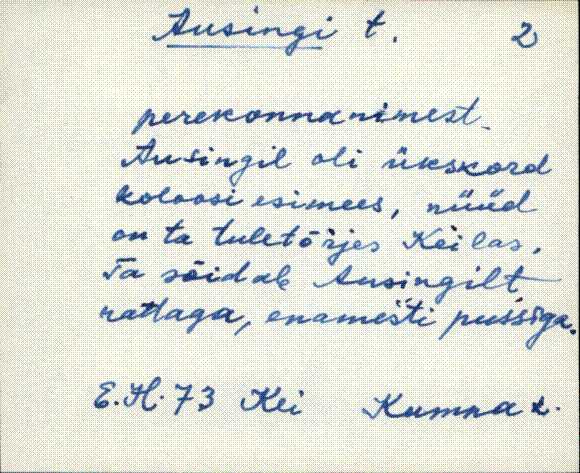 Ausingi t. 2
perekonnanimest.
Ausingil oli ükskord
koloosi esimees, nüüd
on ta tuletõrjes Keilas.
Ta sõidab Ausingilt
rattaga, enamesti pussiga.
E.H. 73 Kei Kumna k.